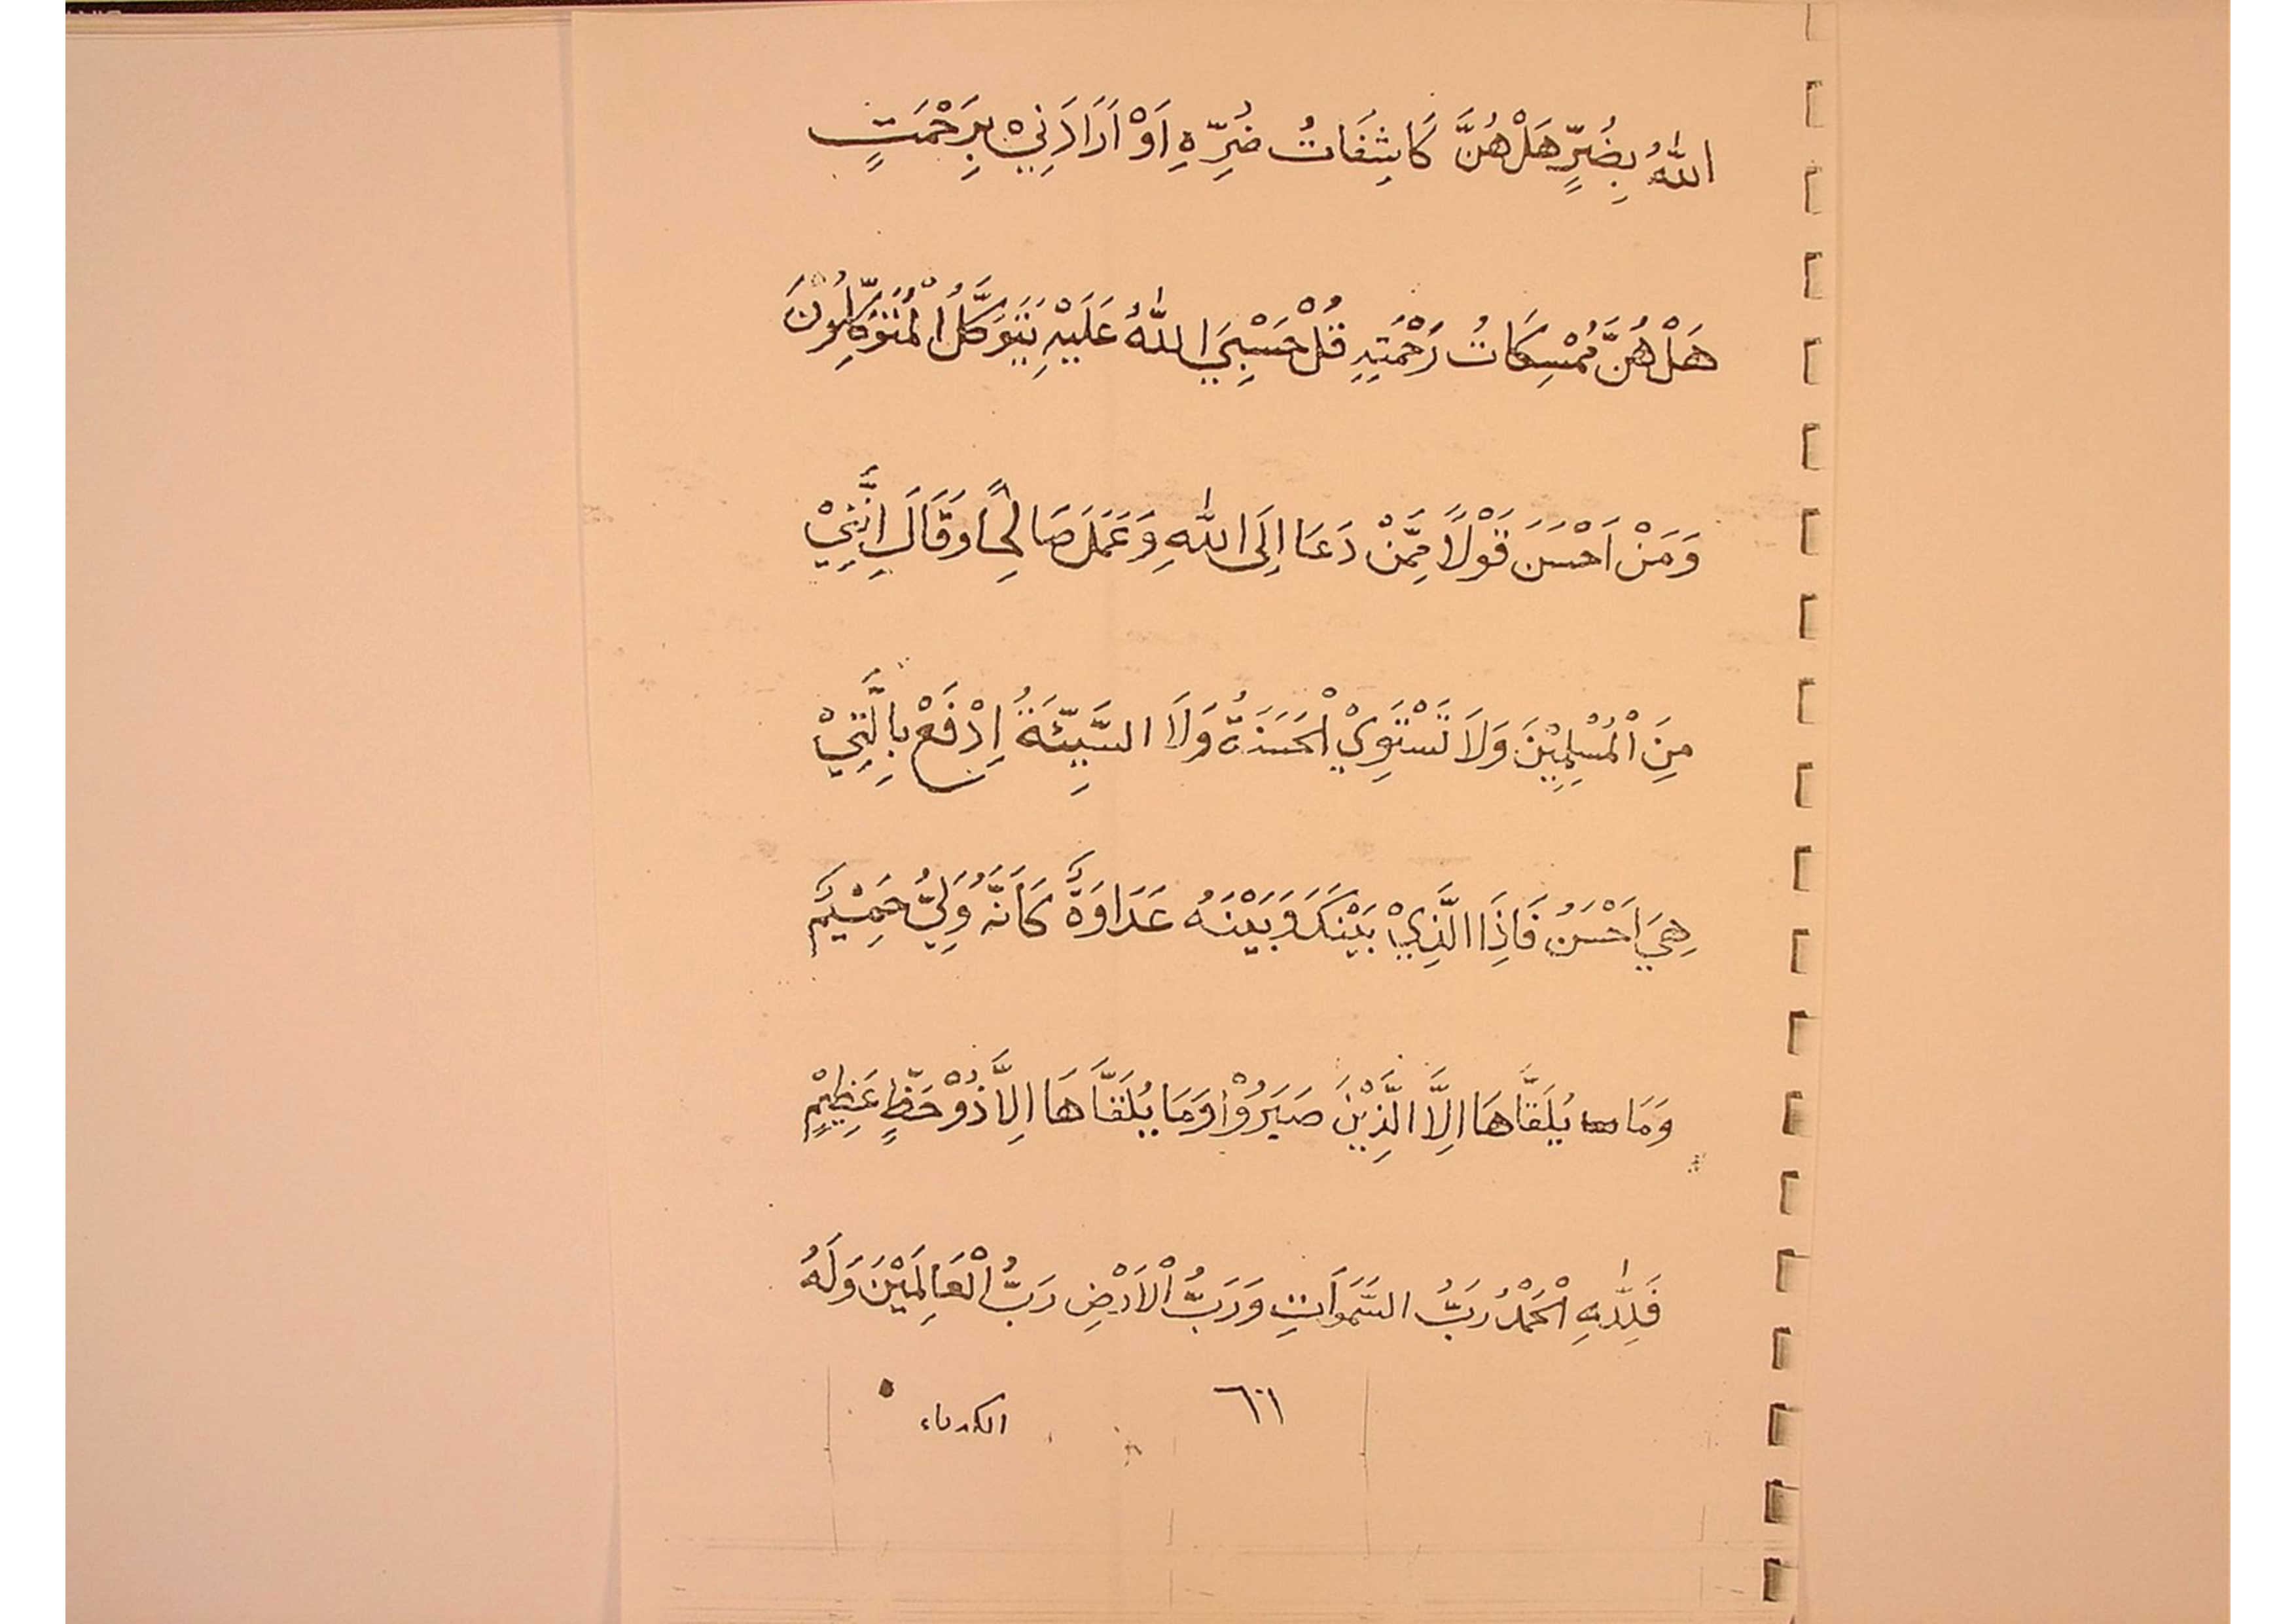 اللّٰهُ بِضُرٍّ هَلْ هُنَّ كَاشِفَاتُ ضُرِّهِ اَوْ اَرَادَنِيْ بِرَحْمَتٍ
هَلْ هُنَّ مُمْسِكَاتُ رَحْمَتِهِ قُلْ حَسْبِيَ اللّٰهُ عَلَيْهِ يَتَوَكَّلُ الْمُتَوَكِّلُوْنَ
وَمَنْ اَحْسَنَ قَوْلًا مِمَّنْ دَعَا اِلَى اللّٰهِ وَعَمَلَ صَالِحًا وَقَالَ اِنَّنِيْ
مِنَ الْمُسْلِمِيْنَ وَلَا تَسْتَوِيْ الْحَسَنَةُ وَلَا السَّيِّئَةُ اِدْفَعْ بِالَّتِيْ
هِيَ اَحْسَنُ فَاِذَا الَّذِيْ بَيْنَكَ وَبَيْنَهُ عَدَاوَةً كَاَنَّهُ وَلِيُّ حَمِيْمٌ
وَمَا يُلَقَّاهَا اِلَّا الَّذِيْنَ صَبَرُوْا وَمَا يُلَقَّاهَا اِلَّا ذُوْ حَظٍّ عَظِيْمٍ
فَلِلّٰهِ الْحَمْدُ رَبُّ السَّمَوَاتِ وَرَبُّ الْاَرْضِ رَبُّ الْعَالِمَيْنَ وَلَهُ